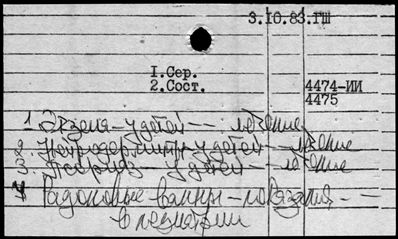 3.10.83.ГШ
1.Сер.
2.Сост.
4474-ИИ
4475
1. Экзема - у детей -- лечение
2. Нейродермиты у детей - лечение
3. Псориаз у детей -- лечение
4 Радоновые ванны - показания --
в педиатрии